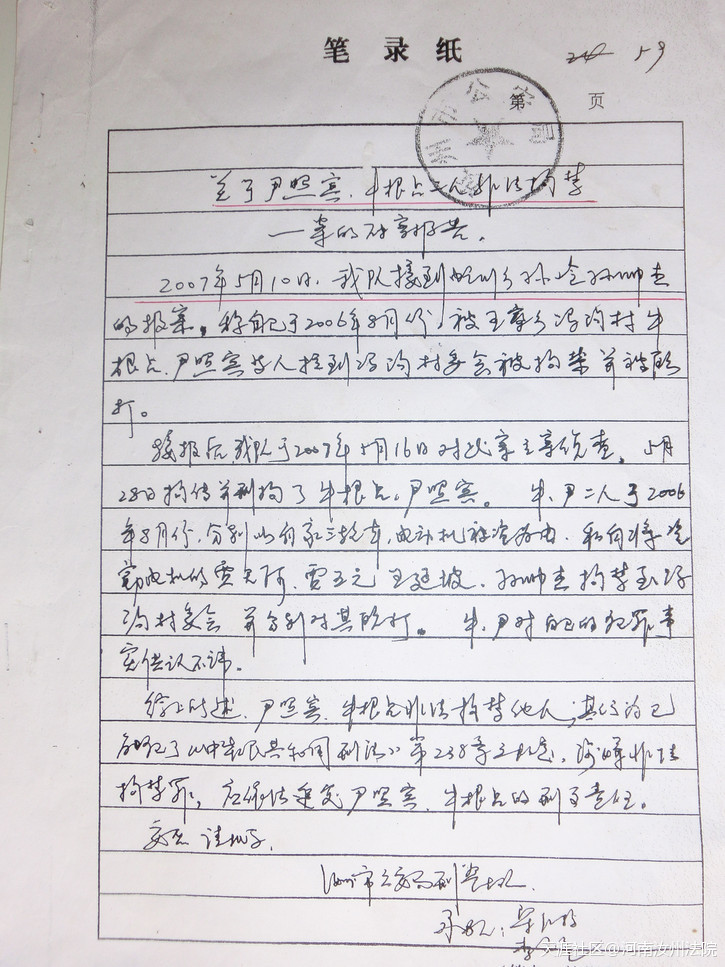 笔录纸
240 59
第 页
州市公安局
关于尹照宾、牛根点二人非法拘禁
一案的破案报告。
2007年5月10日,我队接到蛮川乡孙 孙帅杰
的报案。称自己于2006年8月份,被王寨乡冯沟村牛
根点、尹照宾等人捉到冯沟村委会被拘禁并被殴
打。
接报后我队于2007年5月16日对此案立案侦查。5月
28日拘传并刑拘了牛根点、尹照宾。牛、尹二人于2006
年8月份,分别以自家三轮车,电动机被盗为由,私自将盗
窃电机的贾天河、贾五元、王延坡、孙帅杰拘禁至冯
沟村委会并分别对其殴打。牛、尹对自己的犯罪事
实供认不讳。
综上所述,尹照宾、牛根点非法拘禁他人,其行为已
触犯了《中华人民共和国刑法》第238条之规定,涉嫌非法
拘禁罪,应依法追究尹照宾、牛根点的刑事责任。
妥否 请批示。
汝州市公安局刑警大队
承办人:
天涯社区@河南汝州法院